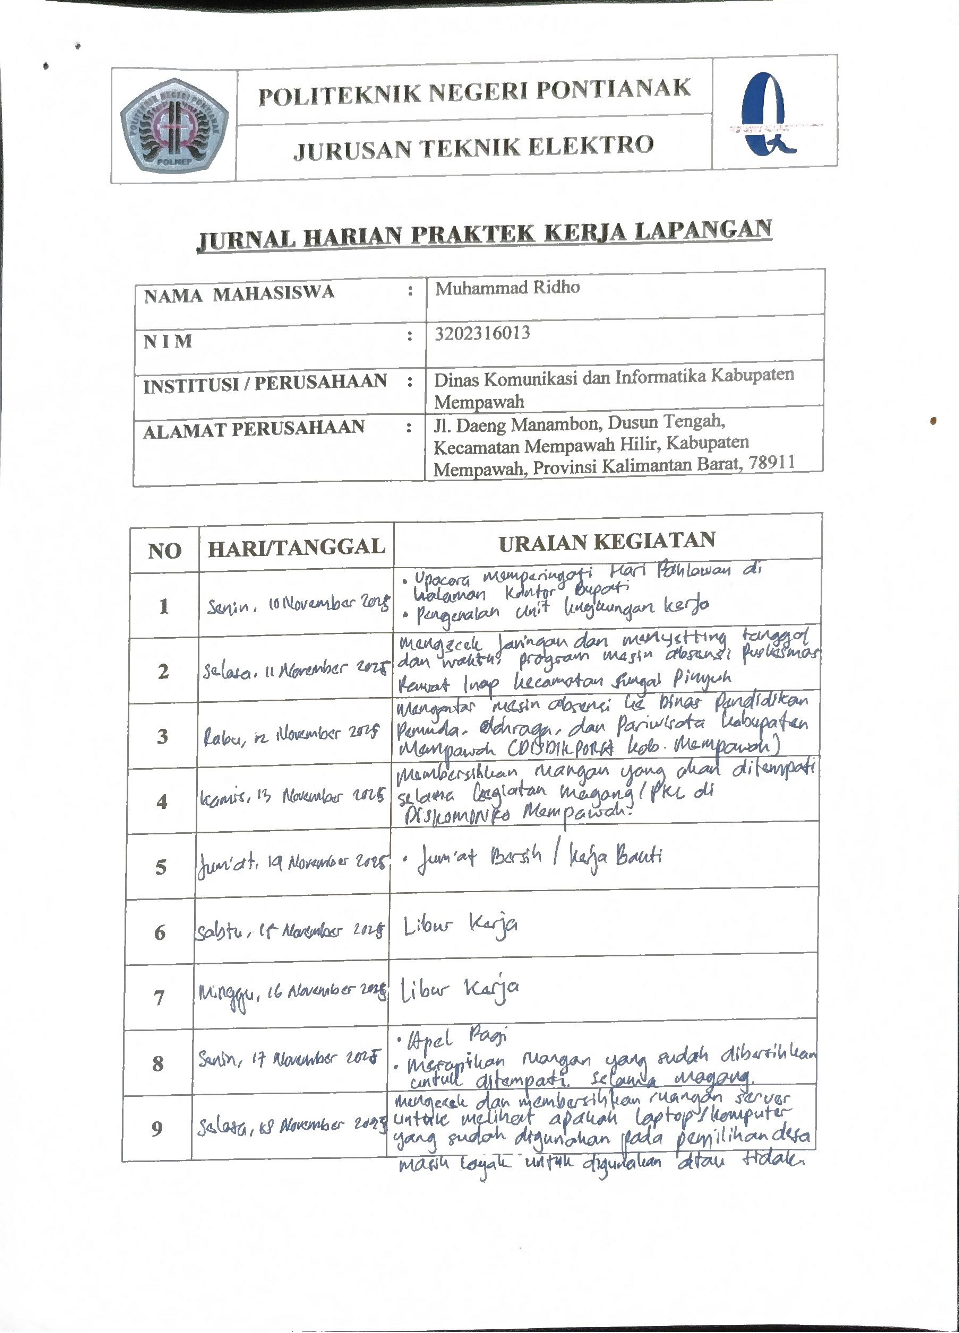 POLITEKNIK NEGERI PONTIANAK
JURUSAN TEKNIK ELEKTRO
POLITEKNIK NEGERI PONTIANAK
POLNEP
JURNAL HARIAN PRAKTEK KERJA LAPANGAN
NAMA MAHASISWA : Muhammad Ridho
N I M : 3202316013
INSTITUSI / PERUSAHAAN : Dinas Komunikasi dan Informatika Kabupaten
Mempawah
ALAMAT PERUSAHAAN : Jl. Daeng Manambon, Dusun Tengah,
Kecamatan Mempawah Hilir, Kabupaten
Mempawah, Provinsi Kalimantan Barat, 78911
NO HARI/TANGGAL URAIAN KEGIATAN
1 Senin, 10 November 2025
• Upacara memperingati Hari Pahlawan di
halaman Kantor Bupati
• Pengenalan Unit lingkungan kerja
2 Selasa, 11 November 2025
Mengecek Jaringan dan menyetting tanggal
dan waktu program mesin absensi Puskesmas
Rawat Inap Kecamatan Sungai Pinyuh
3 Rabu, 12 November 2025
Mengantar mesin absensi ke Dinas Pendidikan
Pemuda, Olahraga, dan Pariwisata Kabupaten
Mempawah (DISDIKPORA kab. Mempawah)
4 Kamis, 13 November 2025
Membersihkan ruangan yang akan ditempati
selama kegiatan magang/PKL di
DISKOMINFO Mempawah.
5 Jum'at, 14 November 2025 • Jum'at Bersih / Kerja Bakti
6 Sabtu, 15 November 2025 Libur Kerja
7 Minggu, 16 November 2025 Libur Kerja
8 Senin, 17 November 2025
• Apel Pagi
• Merapikan ruangan yang sudah dibersihkan
untuk ditempati selama magang.
9 Selasa, 18 November 2025
Mengecek dan membersihkan ruangan server
untuk melihat apakah laptop/komputer
yang sudah digunakan pada pemilihan desa
masih layak untuk digunakan atau tidak.